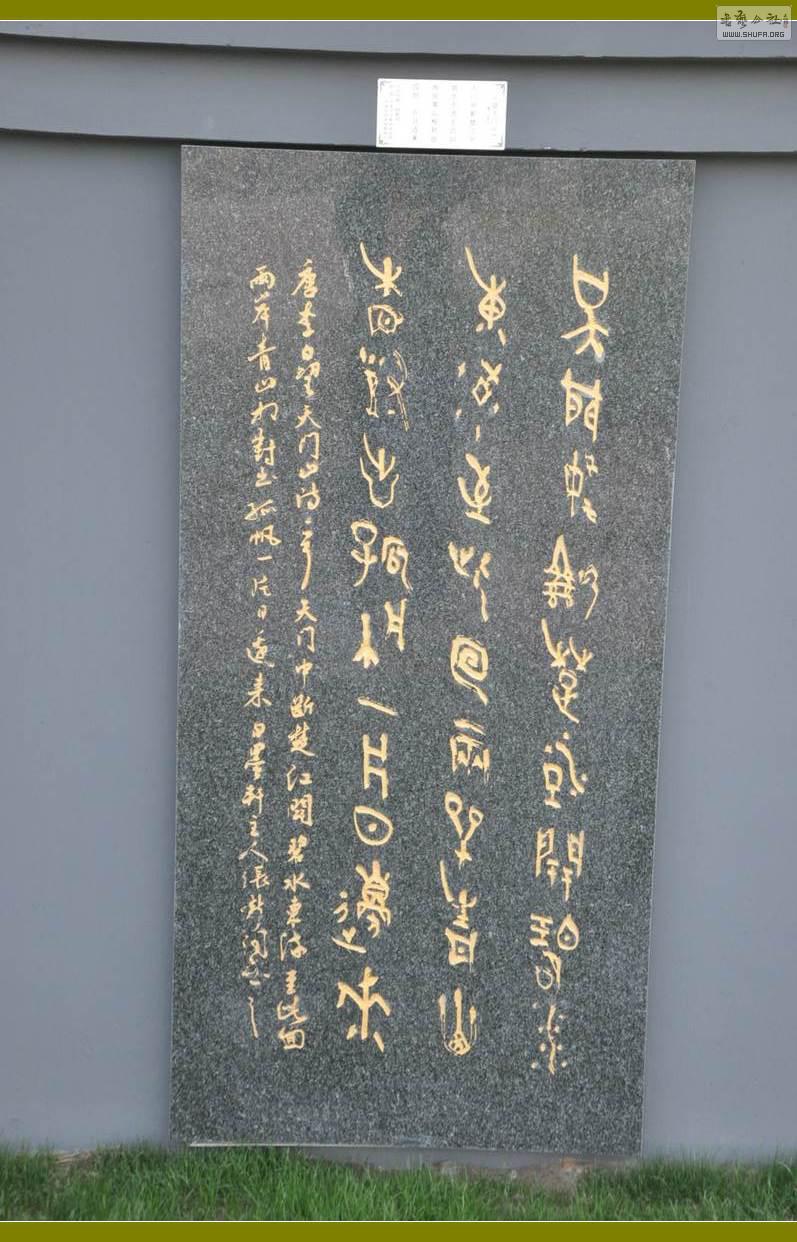 书艺公社
WWW.SHUFA.ORG
天門中斷楚江開碧水
東流至此回兩岸青山
相對出孤帆一片日邊來
唐李白望天门山诗一首天门中斷楚江開碧水東流至此回
兩岸青山相對出孤帆一片日邊來墨軒主人張書之